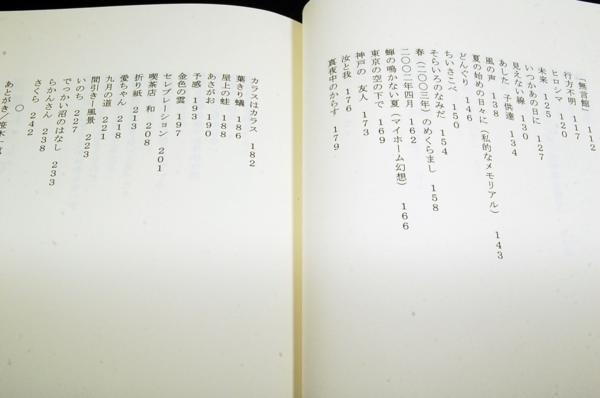 「無言館」 112
行方不明 117
ヒロシマ 120
未来 125
いつかあの日に 127
見えない線 130
あした 子供達 134
風の声 138
夏の始めの日々に（私的なメモリアル） 143
どんぐり 146
ちいさこべ 150
そらいろのなみだ 154
春（二〇〇三年）のめくらまし 158
二〇〇二年四月 162
蝉の鳴かない夏（マイホーム幻想） 166
東京の空の下で 169
神戸の 友人 173
汝と我 176
真夜中のからす 179
カラスはカラス 182
葉きり蟻 186
屋上の蛙 188
あさがお 190
予感 193
金色の雲 197
セレブレーション 201
喫茶店 和 208
折り紙 213
愛ちゃん 218
九月の道 221
間引きー風景 223
いのち 227
でっかい沼のはなし 233
らかんさん 238
さくら 242
〇
あとがき／笹木一